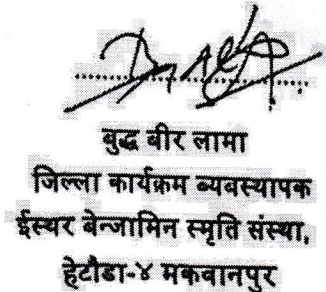 बुद्ध बीर लामा
जिल्ला कार्यक्रम ब्यवस्थापक
ईस्थर बेन्जामिन स्मृति संस्था,
हेटौडा-४ मकवानपुर